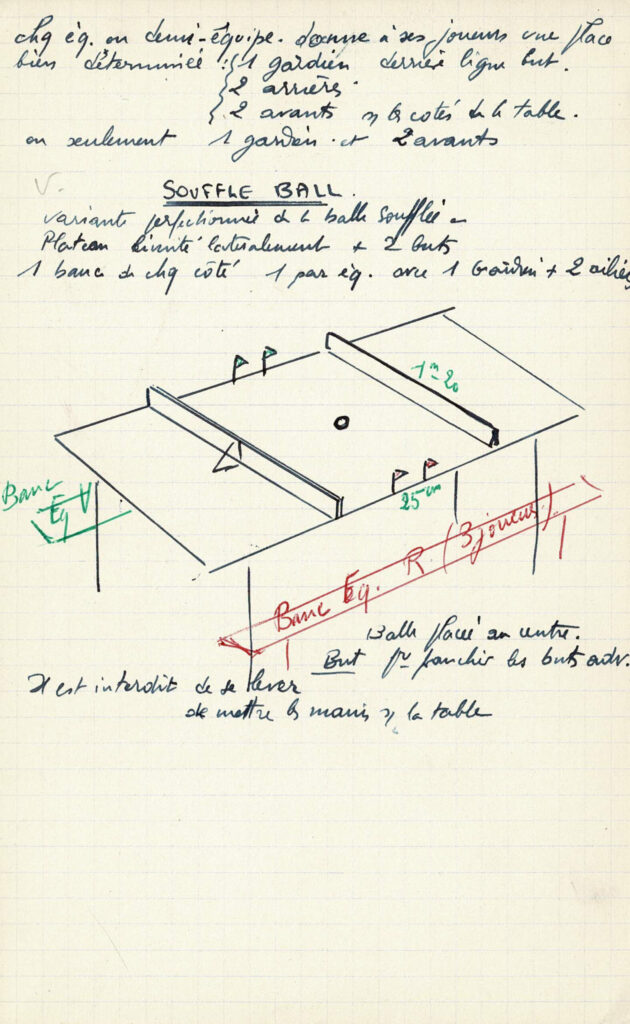 chq éq. ou demi-équipe. donne à ses joueurs une place
bien déterminée : 1 gardien derrière ligne but.
2 arrières.
2 avants les cotés de la table.
ou seulement 1 gardien et 2 avants
V.
SOUFFLE BALL.
variante perfectionnée de la balle soufflée
Plateau limité latéralement + 2 buts
1 banc de chq côté 1 par éq. avec 1 Gardien + 2 ailiers
1m20
25 cm
Banc
Eq V
Banc Eq. R. (3 joueurs)
Balle placée au centre.
But pr franchir les buts adv.
Il est interdit de se lever
de mettre les mains la table